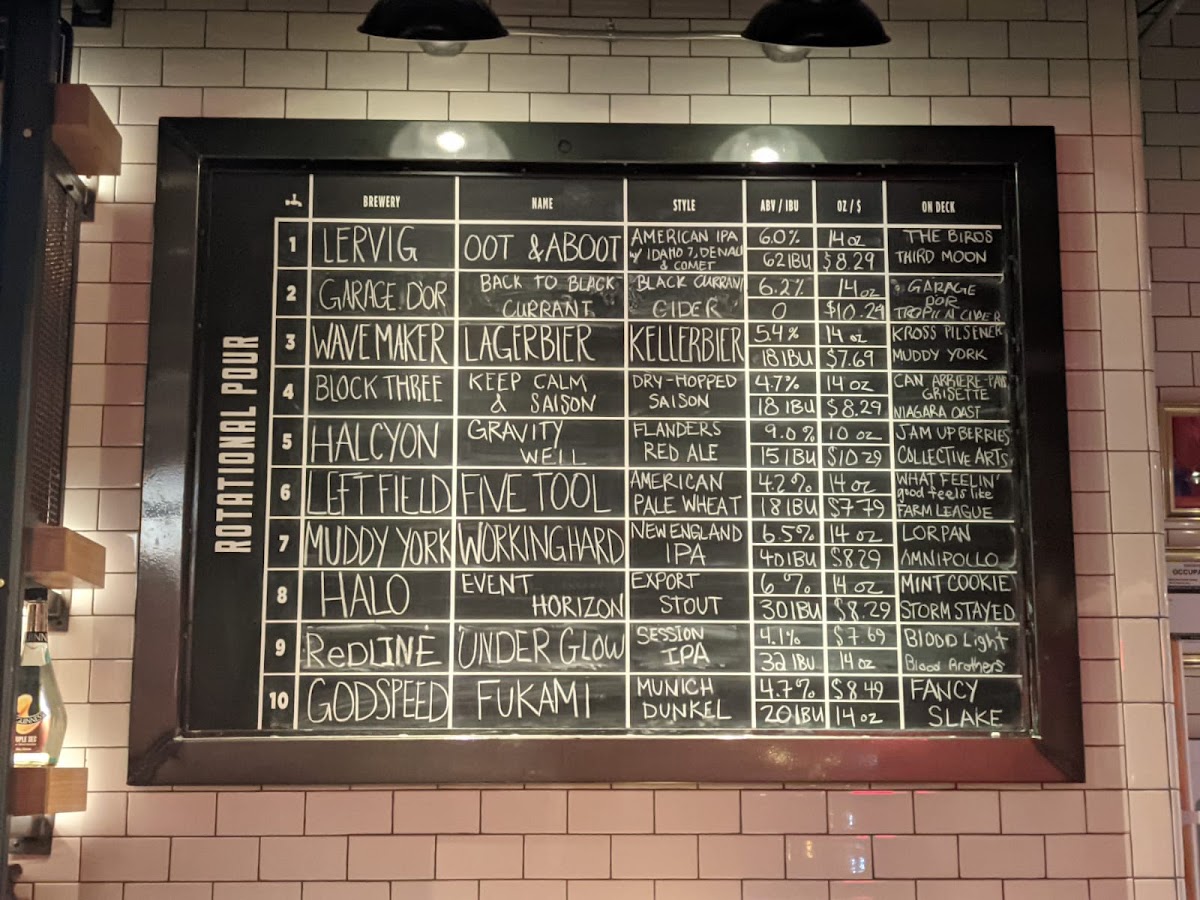 ROTATIONAL POUR
BREWERY NAME STYLE ABV / IBU OZ / $ ON DECK
1 LERVIG OOT & ABOOT AMERICAN IPA 6.0% 14 oz THE BIRDS
w/ IDAHO 7, DENALI & COMET 62 IBU $8.29 THIRD MOON
2 GARAGE D'OR BACK TO BLACK BLACK CURRANT 6.2% 14 oz GARAGE D'OR
CURRANT CIDER 0 $10.29 CIDER
3 WAVE MAKER LAGERBIER KELLERBIER 5.4% 14 oz KROSS PILSENER
18 IBU $7.69 MUDDY YORK
4 BLOCK THREE KEEP CALM DRY-HOPPED 4.7% 14 oz CAN ARRIERE-PAYS GRISETTE
& SAISON SAISON 18 IBU $8.29 NIAGARA OAST
5 HALCYON GRAVITY FLANDERS 9.0% 10 oz JAM UP BERRIES
WELL RED ALE 15 IBU $10 29 COLLECTIVE ARTS
6 LEFT FIELD FIVE TOOL AMERICAN 4.2% 14 oz WHAT FEELIN' good feels like
PALE WHEAT 18 IBU $7.79 FARM LEAGUE
7 MUDDY YORK WORKING HARD NEW ENGLAND 6.5% 14 oz LORPAN
IPA 40 IBU $8.29 OMNIPOLLO
8 HALO EVENT EXPORT 6% 14 oz MINT COOKIE
HORIZON STOUT 30 IBU $8.29 STORM STAYED
9 ReDLINE UNDER GLOW SESSION 4.1% $7.69 Blood Light
IPA 32 IBU 14 oz Blood Brothers
10 GODSPEED FUKAMI MUNICH 4.7% $8.49 FANCY
DUNKEL 20 IBU 14 oz SLAKE